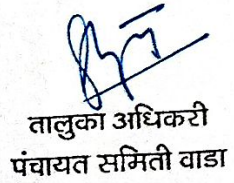 तालुका अधिकरी
पंचायत समिती वाडा